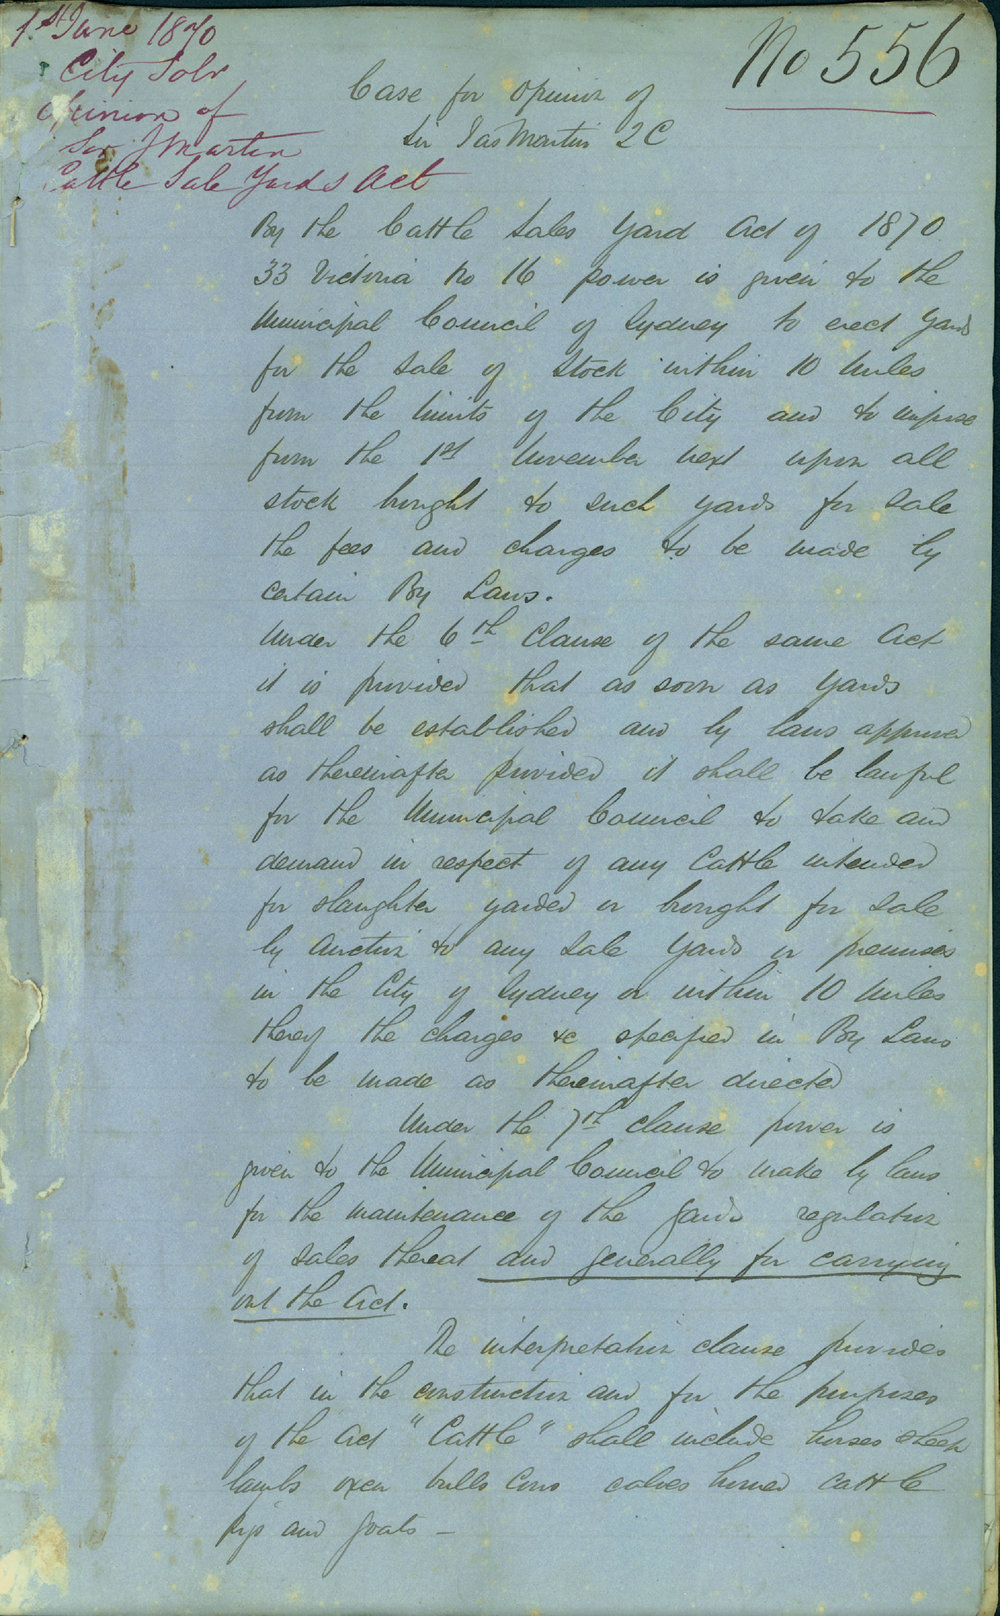 1st June 1870
City Solr
Opinion of
Sir J Martin
Cattle Sale Yards Act
No 556
Case for Opinion of
Sir Jas Martin QC
By the Cattle Sales Yard Act of 1870
33 Victoria No 16 power is given to the
Municipal Council of Sydney to erect Yards
for the Sale of Stock within 10 Miles
from the limits of the City and to impose
from the 1st November next upon all
stock brought to such yards for sale
the fees and charges to be made by
certain By Laws.
Under the 6th Clause of the same Act
it is provided that as soon as Yards
shall be established and by laws approved
as thereinafter provided it shall be lawful
for the Municipal Council to take and
demand in respect of any Cattle intended
for slaughter yarded or brought for sale
by Auction to any Sale Yards or premises
in the City of Sydney or within 10 Miles
thereof the charges &c specified in By Laws
to be made as thereinafter directed
Under the 7th clause power is
given to the Municipal Council to make by laws
for the maintenance of the Yards regulation
of Sales thereat and generally for carrying
out the Act.
The interpretation clause provides
that in the construction and for the purposes
of the Act "Cattle" shall include horses sheep
lambs oxen bulls cows calves horned cattle
pigs and goats —